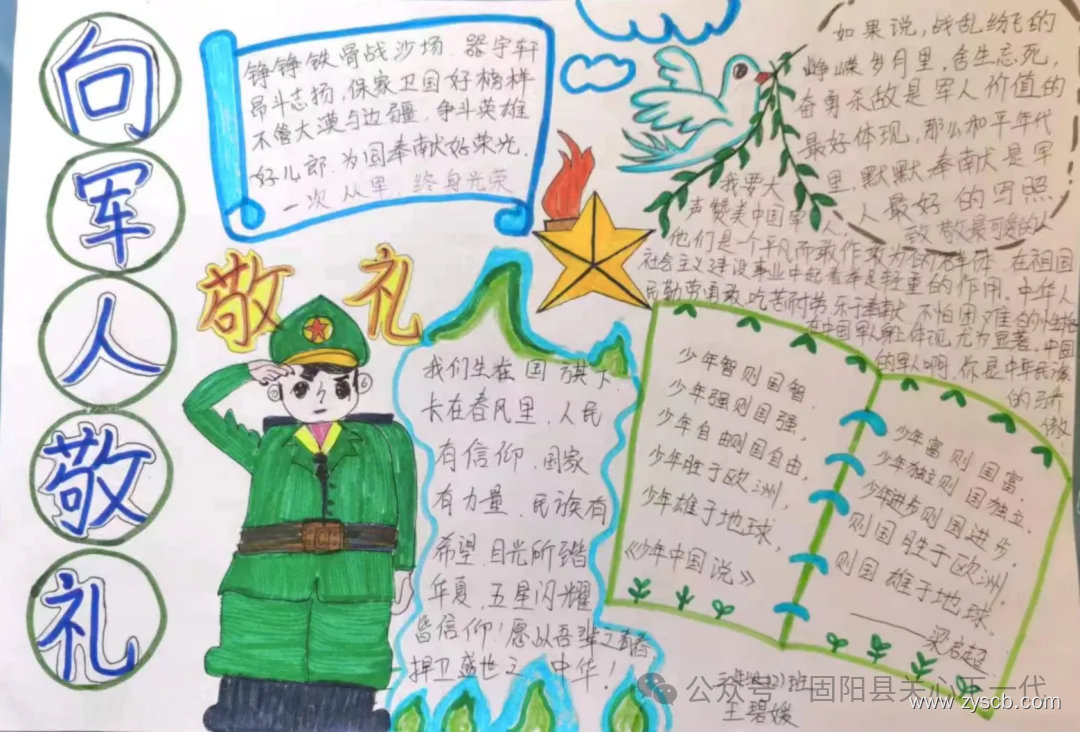 向
军
人
敬
礼
铮铮铁骨战沙场，器宇轩
昂斗志扬，保家卫国好榜样
不管大漠与边疆，争斗英雄
好儿郎，为国奉献好荣光，
一次从军，终身光荣
如果说，战乱纷飞的
峥嵘岁月里，舍生忘死，
奋勇杀敌是军人价值的
最好体现，那么和平年代
里，默默奉献是军
人最好的写照
致敬最可爱的人
敬礼
我要大
声赞美中国军人
他们是一个平凡而敢作敢为的群体，在祖国
社会主义建设事业中起着举足轻重的作用，中华人
民勤劳勇敢，吃苦耐劳，乐于奉献，不怕困难的性格
在中国军人身上体现尤为显著，中国
的军人啊，你是中华民族
的骄
傲
我们生在国旗下
卡在春风里，人民
有信仰，国家
有力量，民族有
希望，目光所踏
华夏，五星闪耀
皆信仰！愿以吾辈之青春
捍卫盛世之中华！
少年智则国智，
少年强则国强，
少年自由则国自由，
少年胜于欧洲，
少年雄于地球，
《少年中国说》
少年富则国富，
少年独立则国独立，
少年进步则国进步，
则国胜于欧洲，
则国雄于地球，
——梁启超
班
王碧媛
公众号·固阳县关心下一代
www.zyscb.com